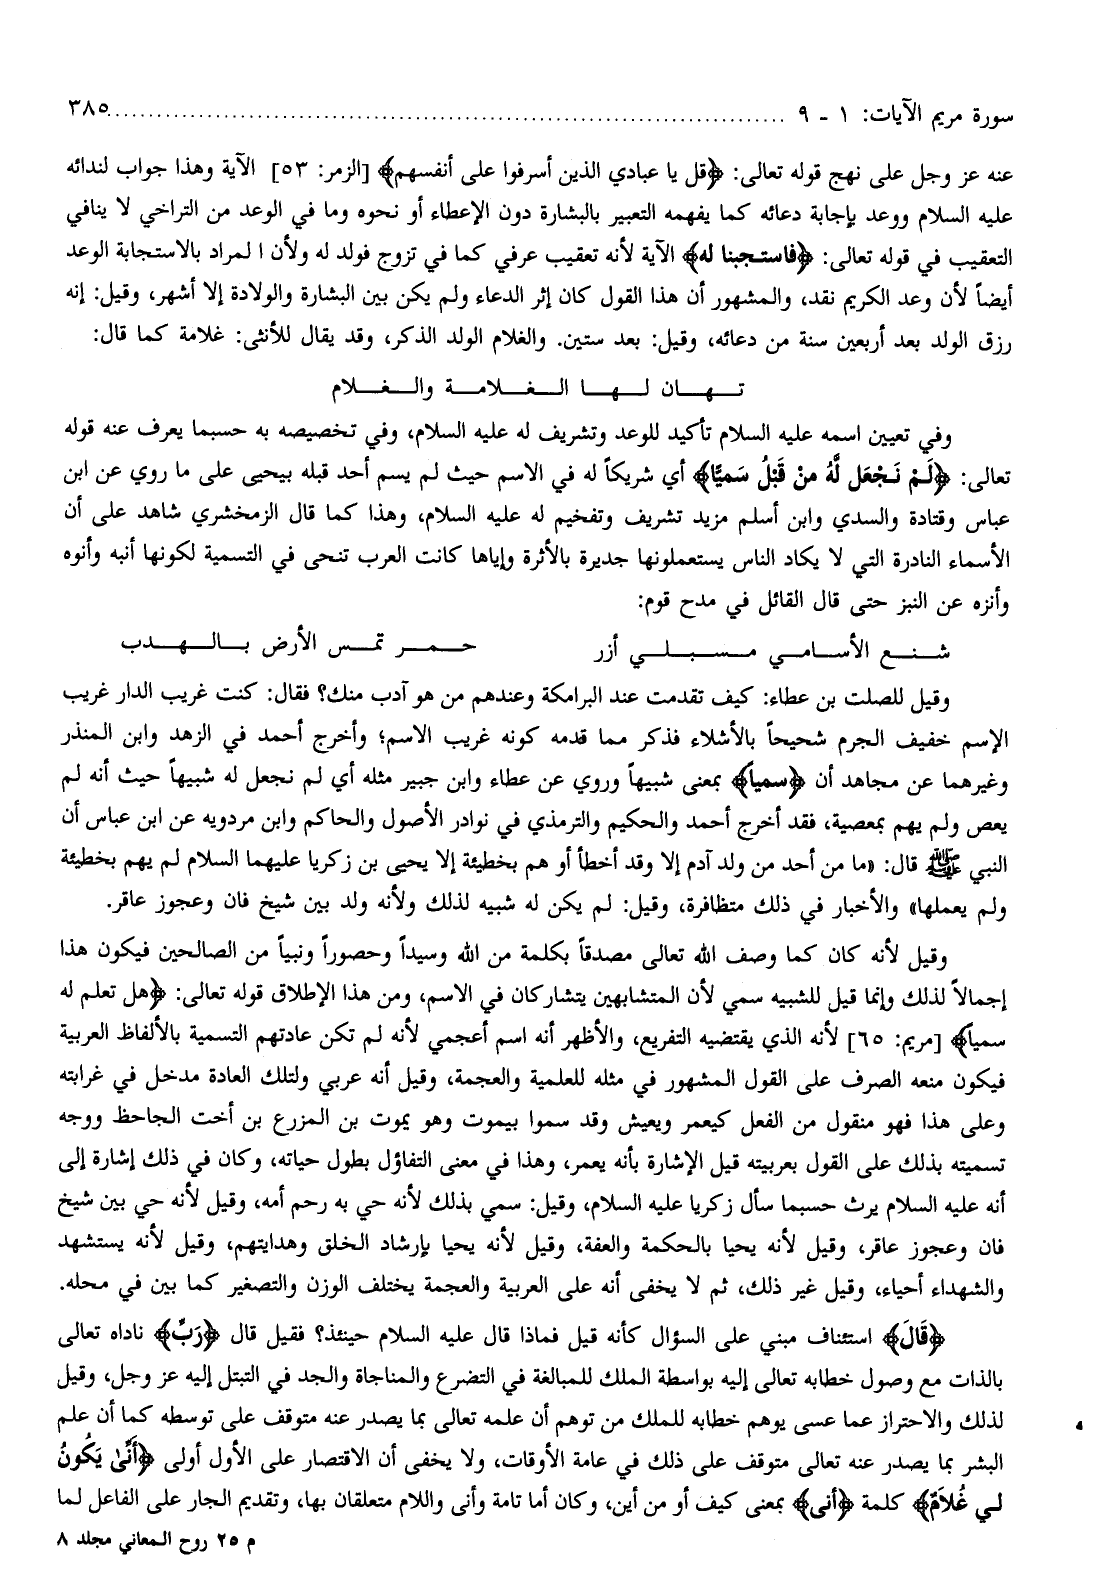 سورة مريم الآيات: ١ - ٩ ........................................................................ ٣٨٥
عنه عز وجل على نهج قوله تعالى: ﴿قل يا عبادي الذين أسرفوا على أنفسهم﴾ [الزمر: ٥٣] الآية وهذا جواب لندائه
عليه السلام ووعد بإجابة دعائه كما يفهمه التعبير بالبشارة دون الإعطاء أو نحوه وما في الوعد من التراخي لا ينافي
التعقيب في قوله تعالى: ﴿فاستجبنا له﴾ الآية لأنه تعقيب عرفي كما في تزوج فولد له ولأن ا لمراد بالاستجابة الوعد
أيضاً لأن وعد الكريم نقد، والمشهور أن هذا القول كان إثر الدعاء ولم يكن بين البشارة والولادة إلا أشهر، وقيل: إنه
رزق الولد بعد أربعين سنة من دعائه، وقيل: بعد ستين. والغلام الولد الذكر، وقد يقال للأنثى: غلامة كما قال:
تهان لها الغلامة والغلام
وفي تعيين اسمه عليه السلام تأكيد للوعد وتشريف له عليه السلام، وفي تخصيصه به حسبما يعرف عنه قوله
تعالى: ﴿لَمْ نَجْعَل لَّهُ مِنْ قَبْلُ سَمِيًّا﴾ أي شريكاً له في الاسم حيث لم يسم أحد قبله بيحيى على ما روي عن ابن
عباس وقتادة والسدي وابن أسلم مزيد تشريف وتفخيم له عليه السلام، وهذا كما قال الزمخشري شاهد على أن
الأسماء النادرة التي لا يكاد الناس يستعملونها جديرة بالأثرة وإياها كانت العرب تنحى في التسمية لكونها أنبه وأنوه
وأنزه عن النبز حتى قال القائل في مدح قوم:
شنع الأسامي مسبلي أزر حمر تمس الأرض بالهدب
وقيل للصلت بن عطاء: كيف تقدمت عند البرامكة وعندهم من هو آدب منك؟ فقال: كنت غريب الدار غريب
الإسم خفيف الجرم شحيحاً بالأشلاء فذكر مما قدمه كونه غريب الاسم؛ وأخرج أحمد في الزهد وابن المنذر
وغيرهما عن مجاهد أن ﴿سمياً﴾ بمعنى شبيهاً وروي عن عطاء وابن جبير مثله أي لم نجعل له شبيهاً حيث أنه لم
يعص ولم يهم بمعصية، فقد أخرج أحمد والحكيم والترمذي في نوادر الأصول والحاكم وابن مردويه عن ابن عباس أن
النبي ﷺ قال: «ما من أحد من ولد آدم إلا وقد أخطأ أو هم بخطيئة إلا يحيى بن زكريا عليهما السلام لم يهم بخطيئة
ولم يعملها» والأخبار في ذلك متظافرة، وقيل: لم يكن له شبيه لذلك ولأنه ولد بين شيخ فان وعجوز عاقر.
وقيل لأنه كان كما وصف الله تعالى مصدقاً بكلمة من الله وسيداً وحصوراً ونبياً من الصالحين فيكون هذا
إجمالاً لذلك وإنما قيل للشبيه سمي لأن المتشابهين يتشاركان في الاسم، ومن هذا الإطلاق قوله تعالى: ﴿هل تعلم له
سمياً﴾ [مريم: ٦٥] لأنه الذي يقتضيه التفريع، والأظهر أنه اسم أعجمي لأنه لم تكن عادتهم التسمية بالألفاظ العربية
فيكون منعه الصرف على القول المشهور في مثله للعلمية والعجمة، وقيل أنه عربي ولتلك العادة مدخل في غرابته
وعلى هذا فهو منقول من الفعل كيعمر ويعيش وقد سموا بيموت وهو يموت بن المزرع بن أخت الجاحظ ووجه
تسميته بذلك على القول بعربيته قيل الإشارة بأنه يعمر، وهذا في معنى التفاؤل بطول حياته، وكان في ذلك إشارة إلى
أنه عليه السلام يرث حسبما سأل زكريا عليه السلام، وقيل: سمي بذلك لأنه حي به رحم أمه، وقيل لأنه حي بين شيخ
فان وعجوز عاقر، وقيل لأنه يحيا بالحكمة والعفة، وقيل لأنه يحيا بإرشاد الخلق وهدايتهم، وقيل لأنه يستشهد
والشهداء أحياء، وقيل غير ذلك، ثم لا يخفى أنه على العربية والعجمة يختلف الوزن والتصغير كما بين في محله.
﴿قَالَ﴾ استئناف مبني على السؤال كأنه قيل فماذا قال عليه السلام حينئذ؟ فقيل قال ﴿رَبِّ﴾ ناداه تعالى
بالذات مع وصول خطابه تعالى إليه بواسطة الملك للمبالغة في التضرع والمناجاة والجد في التبتل إليه عز وجل، وقيل
لذلك والاحتراز عما عسى يوهم خطابه للملك من توهم أن علمه تعالى بما يصدر عنه متوقف على توسطه كما أن علم
البشر بما يصدر عنه تعالى متوقف على ذلك في عامة الأوقات، ولا يخفى أن الاقتصار على الأول أولى ﴿أَنَّىٰ يَكُونُ
لي غُلاَمٌ﴾ كلمة ﴿أنى﴾ بمعنى كيف أو من أين، وكان أما تامة وأنى واللام متعلقان بها، وتقديم الجار على الفاعل لما
م ٢٥ روح المعاني مجلد ٨